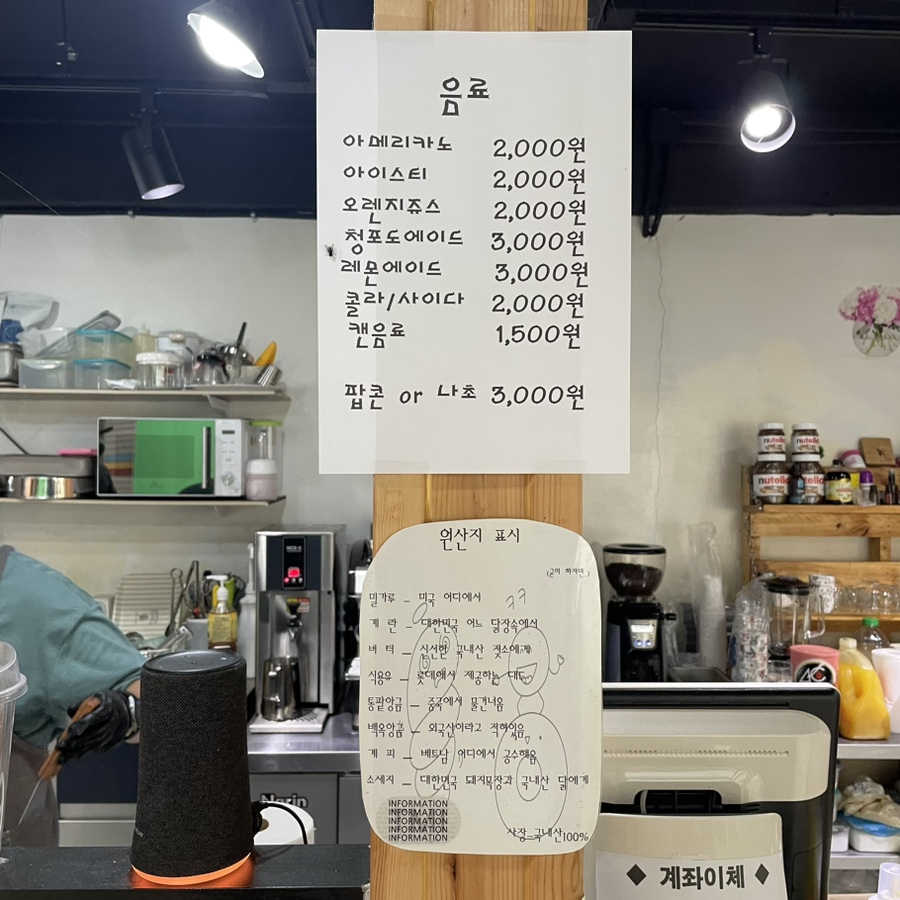 음료
아메리카노 2,000원
아이스티 2,000원
오렌지쥬스 2,000원
청포도에이드 3,000원
레몬에이드 3,000원
콜라/사이다 2,000원
캔음료 1,500원
팝콘 or 나초 3,000원
원산지 표시
(굳이 하자면..)
밀가루 - 미국 어디에서
ㅋㅋ
계란 - 대한민국 어느 닭장속에서
버터 - 신선한 국내산 젖소에게
식용유 - 롯데에서 제공하는 대두
통팥앙금 - 중국에서 물건너옴
백옥앙금 - 외국산이라고 적혀있음
계피 - 베트남 어디에서 공수해옴
소세지 - 대한민국 돼지목장과 국내산 닭에게
INFORMATION
INFORMATION
INFORMATION
INFORMATION
INFORMATION
사장-국내산100%
nutella
nutella
nutella
nutella
◆ 계좌이체 ◆